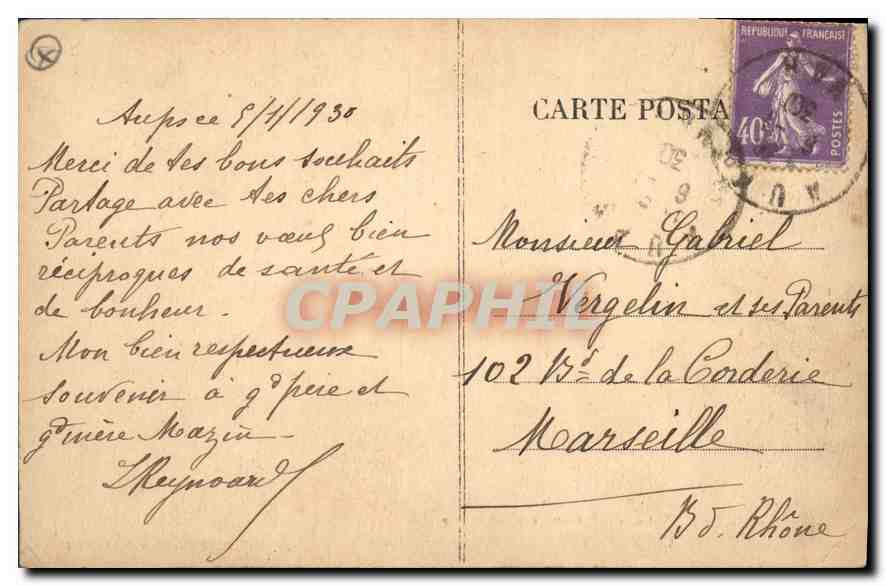 5/1/1930
Merci de tes bons souhaits
Partage avec tes chers
Parents nos vœux bien
réciproques de santé et
de bonheur.
Mon bien respectueux
souvenir à gd père et
gd mère Mazin
LReynoard
CARTE POSTA
REPUBLIQUE FRANÇAISE
40c
POSTES
Monsieur Gabriel
Vergelin et ses Parents
102 Bd de la Corderie
Marseille
B d. Rhône
CPAPHIL